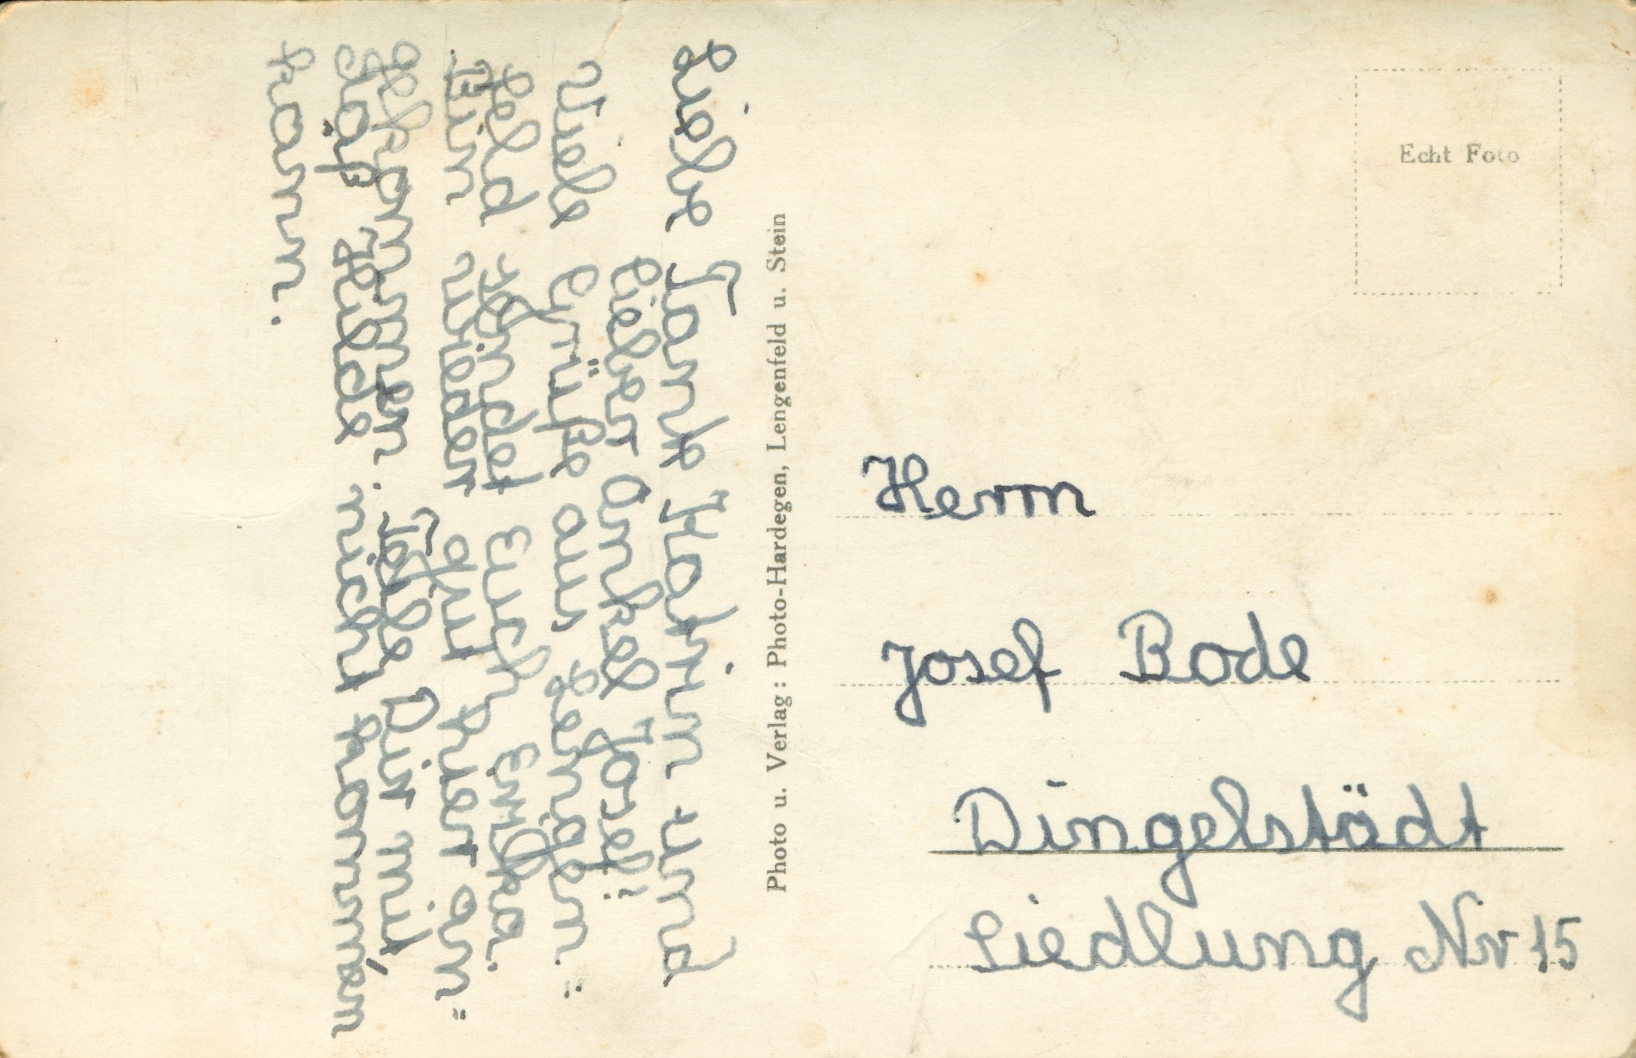 Liebe Tante Katrin und
lieber Onkel Josef!
Viele Grüße aus Lengen=
feld sendet Euch Erika.
Bin wieder gut hier an=
gekommen. Teile Dir mit,
daß Hilde nicht kommen
kann.
Photo u. Verlag: Photo-Hardegen, Lengenfeld u. Stein
Echt Foto
Herrn
Josef Bode
Dingelstädt
Siedlung Nr 15